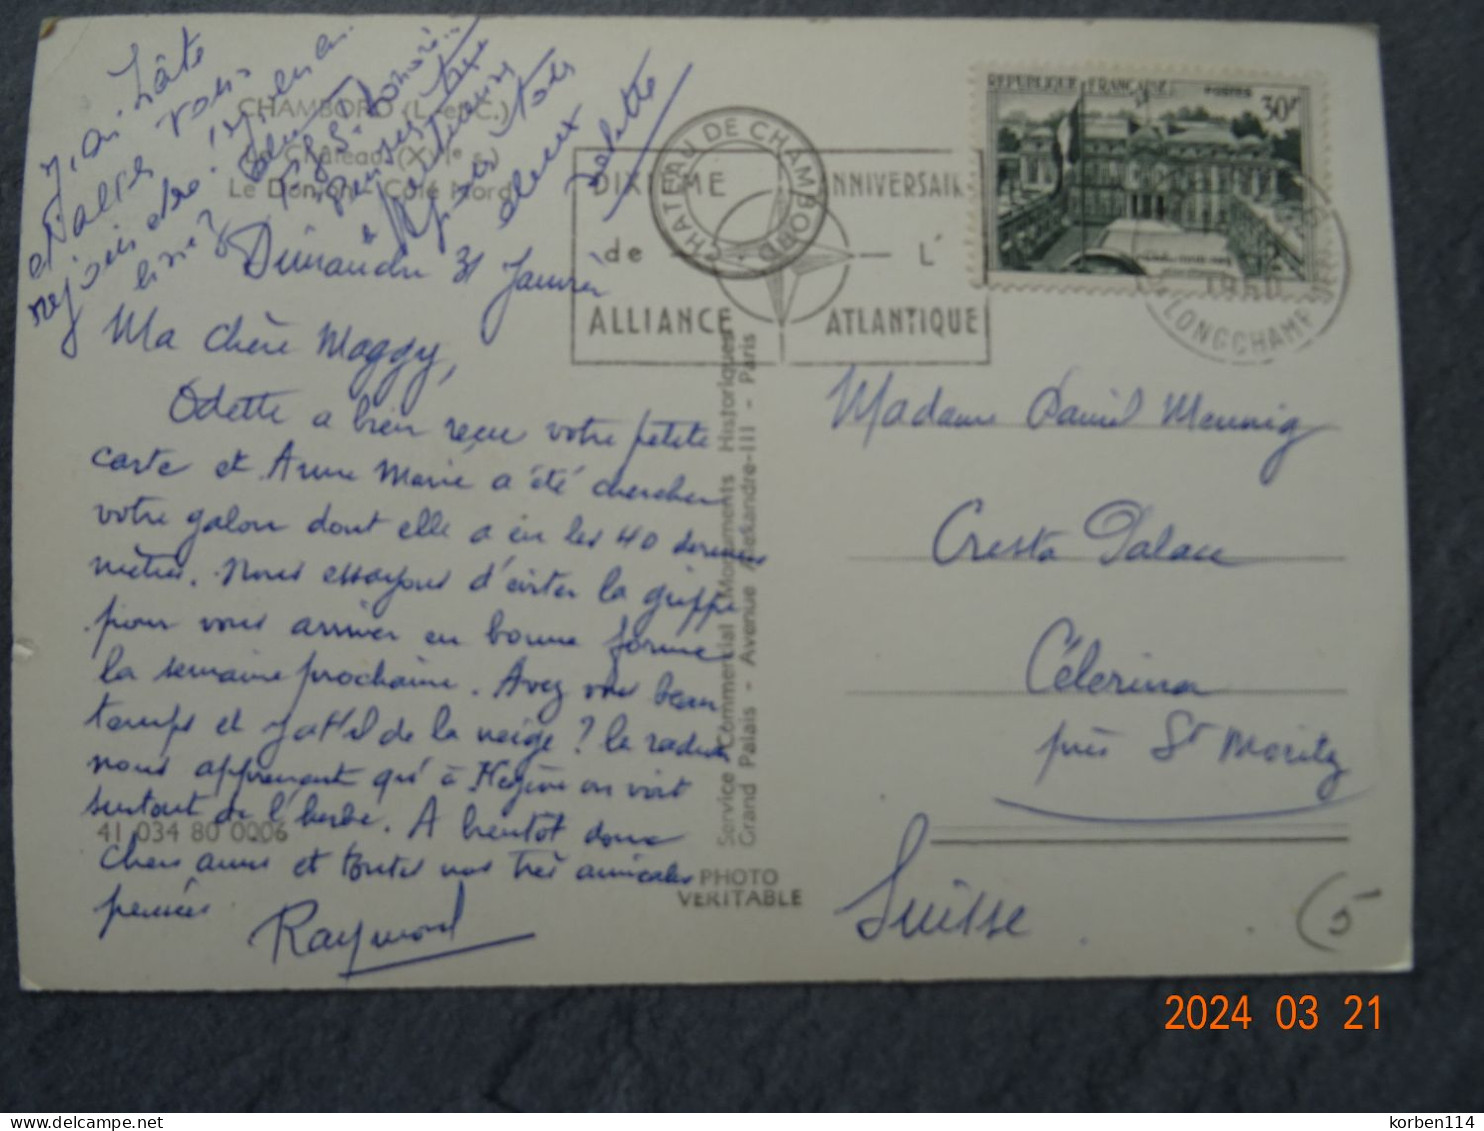 J'ai hâte
d'aller vous
rejoindre!
CHAMBORD (L.-et-C.)
Le Château (XVIe s.)
Le Donjon, Côté Nord
Odette
Dimanche 31 Janvier
Ma chère Maggy,
Odette a bien reçu votre petite
carte et Anne Marie a été chercher
votre galon dont elle a eu les 40 derniers
mètres. Nous essayons d'éviter la grippe
pour vous arriver en bonne forme
la semaine prochaine. Avez vous beau
temps et y a t'il de la neige? la radio
nous apprenant qu'à Megève on voit
surtout de l'herbe. A bientôt donc
chers amis et toutes nos très amicales
pensées.
Raymond
41 034 80 0006
Service Commercial Monuments Historiques
Grand Palais - Avenue Alexandre-III - Paris
PHOTO
VERITABLE
CHATEAU DE CHAMBORD
DIXIEME ANNIVERSAIRE
de L'
ALLIANCE ATLANTIQUE
REPUBLIQUE FRANÇAISE
POSTES
30F
1960
LONGCHAMP
Madame Daniel Meunig
Cresta Palace
Célerina
près St Moritz
Suisse
(5
2024 03 21
korben114